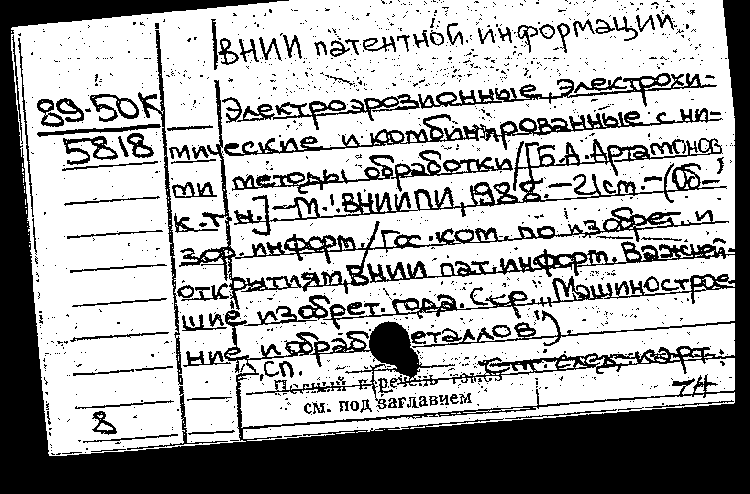 ВНИИ патентной информации.
89-50К
5818
Электроэрозионные, электрохи-
мические и комбинированные с ни-
ми методы обработки/[Б.А.Артамонов
к.т.н.].-М.:ВНИИПИ,1988.-21см.-(Об-
зор. информ./Гос.ком. по изобрет. и
открытиям,ВНИИ пат.информ. Важней-
шие изобрет. года. Сер. "Машинострое-
ние и обраб металлов").
,СП.
См. след. карт.
Полный перечень томов
см. под заглавием
8